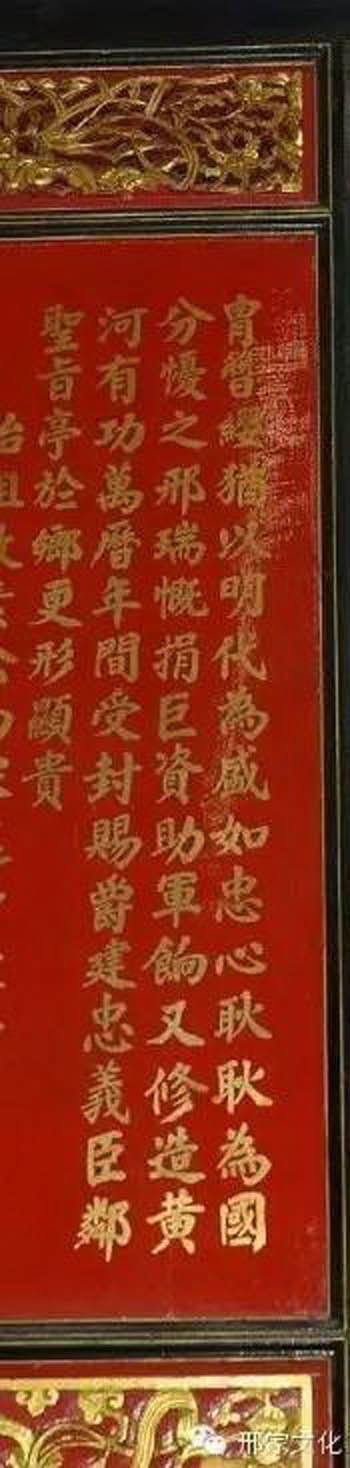 胄簪纓猶以明代為盛如忠心耿耿為國
分懮之邢瑞慨捐巨資助軍餉又修造黄
河有功萬曆年間受封賜爵建忠義臣鄰
聖旨亭於鄉更形顯貴
邢宗文化